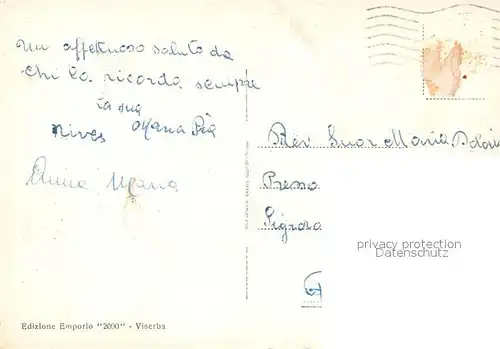 Un affettuoso saluto da
chi la ricorda sempre
la sua
Nives Maria Pia
Anna Maria
Rev Suor Maria
Signora
privacy protection
Datenschutz
Edizione Emporio "2000" - Viserba